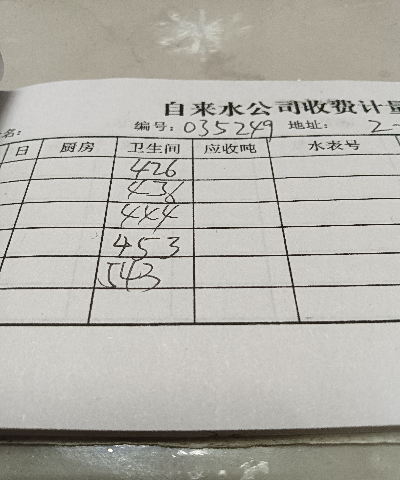 自来水公司收费计量
名： 编号：035249 地址：2-
日 厨房 卫生间 应收吨 水表号
426
436
444
453
543